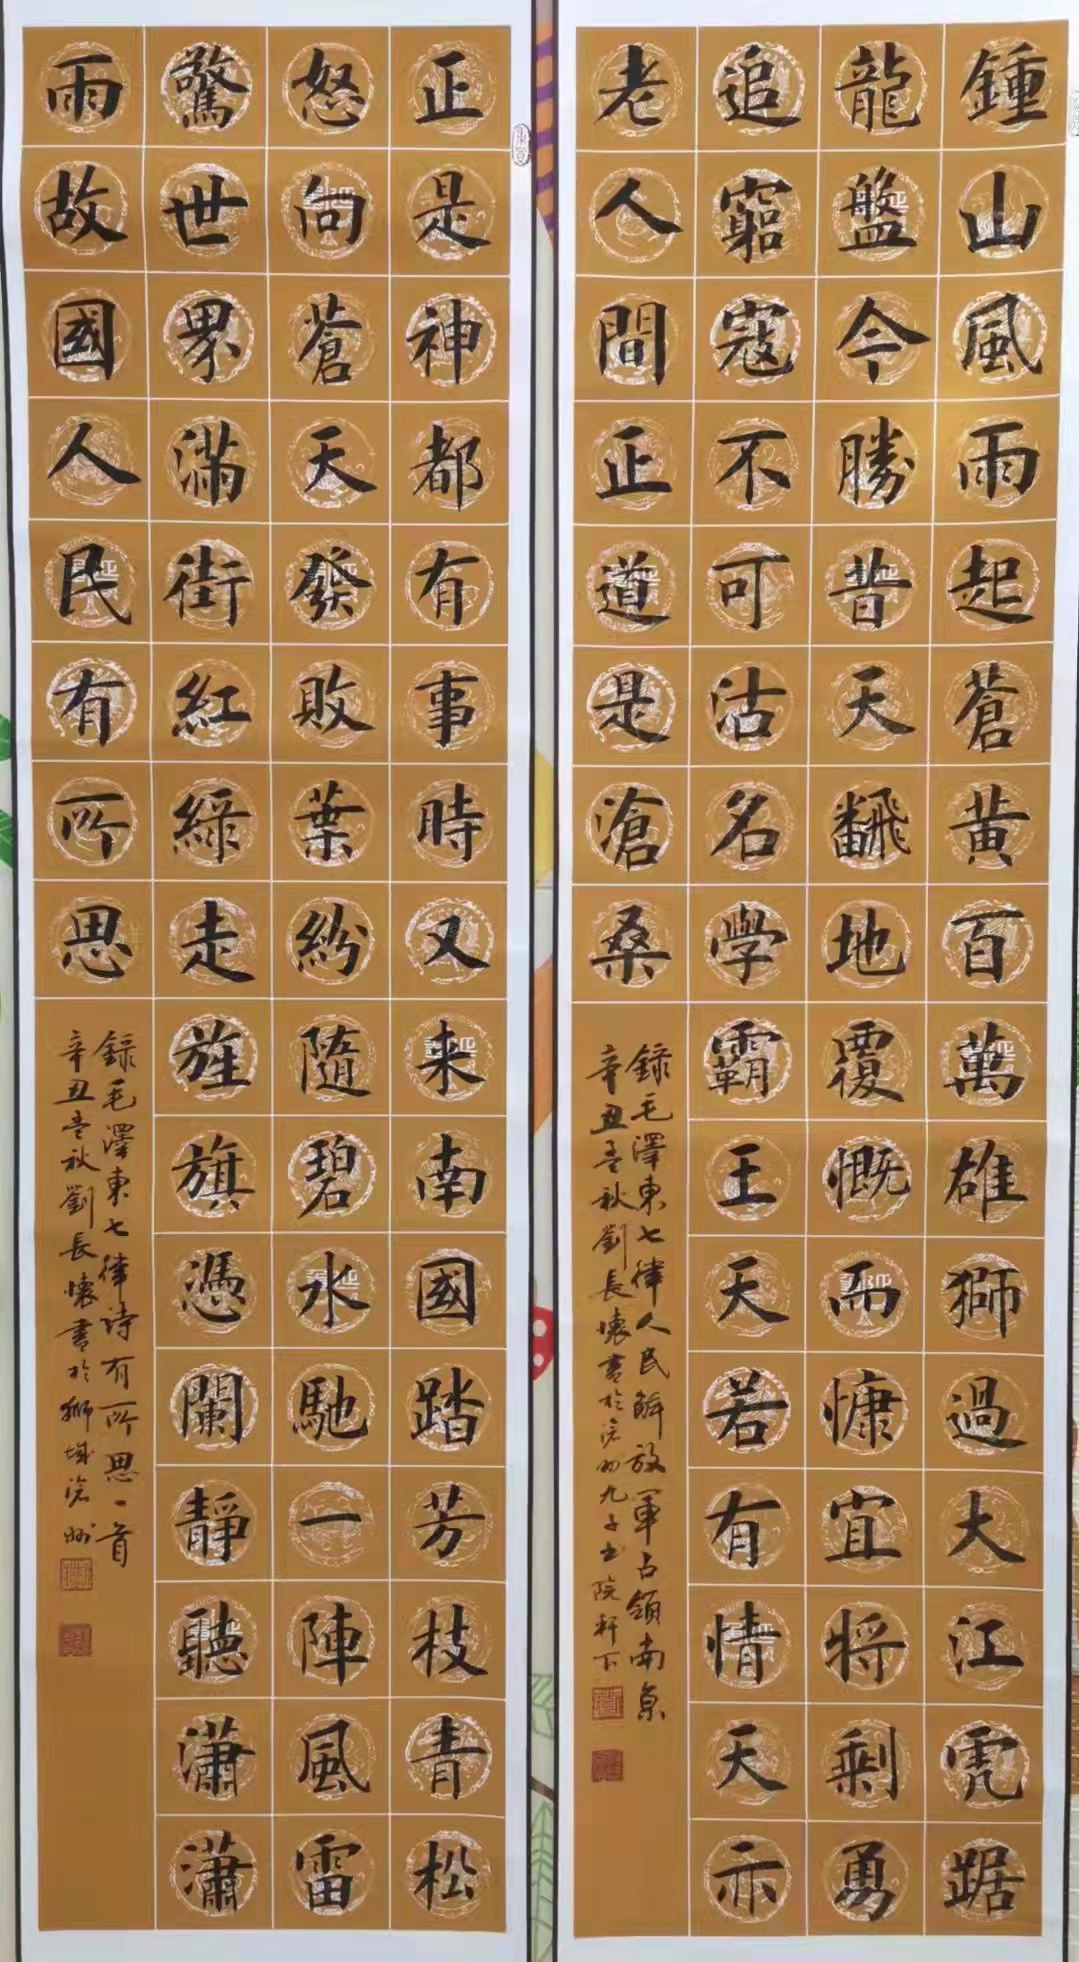 鍾山風雨起蒼黃百萬雄獅過大江虎踞
龍盤今勝昔天飜地覆慨而慷宜將剩勇
追窮寇不可沽名學霸王天若有情天亦
老人間正道是滄桑
錄毛澤東七律人民解放軍占領南京
辛丑孟秋劉長懷書於滄州九子书院軒下
正是神都有事時又来南國踏芳枝青松
怒向蒼天發敗葉紛隨碧水馳一陣風雷
驚世界滿街紅綠走旌旗憑闌靜聽瀟瀟
雨故國人民有所思
錄毛澤東七律诗有所思一首
辛丑孟秋劉長懷書於獅城滄州